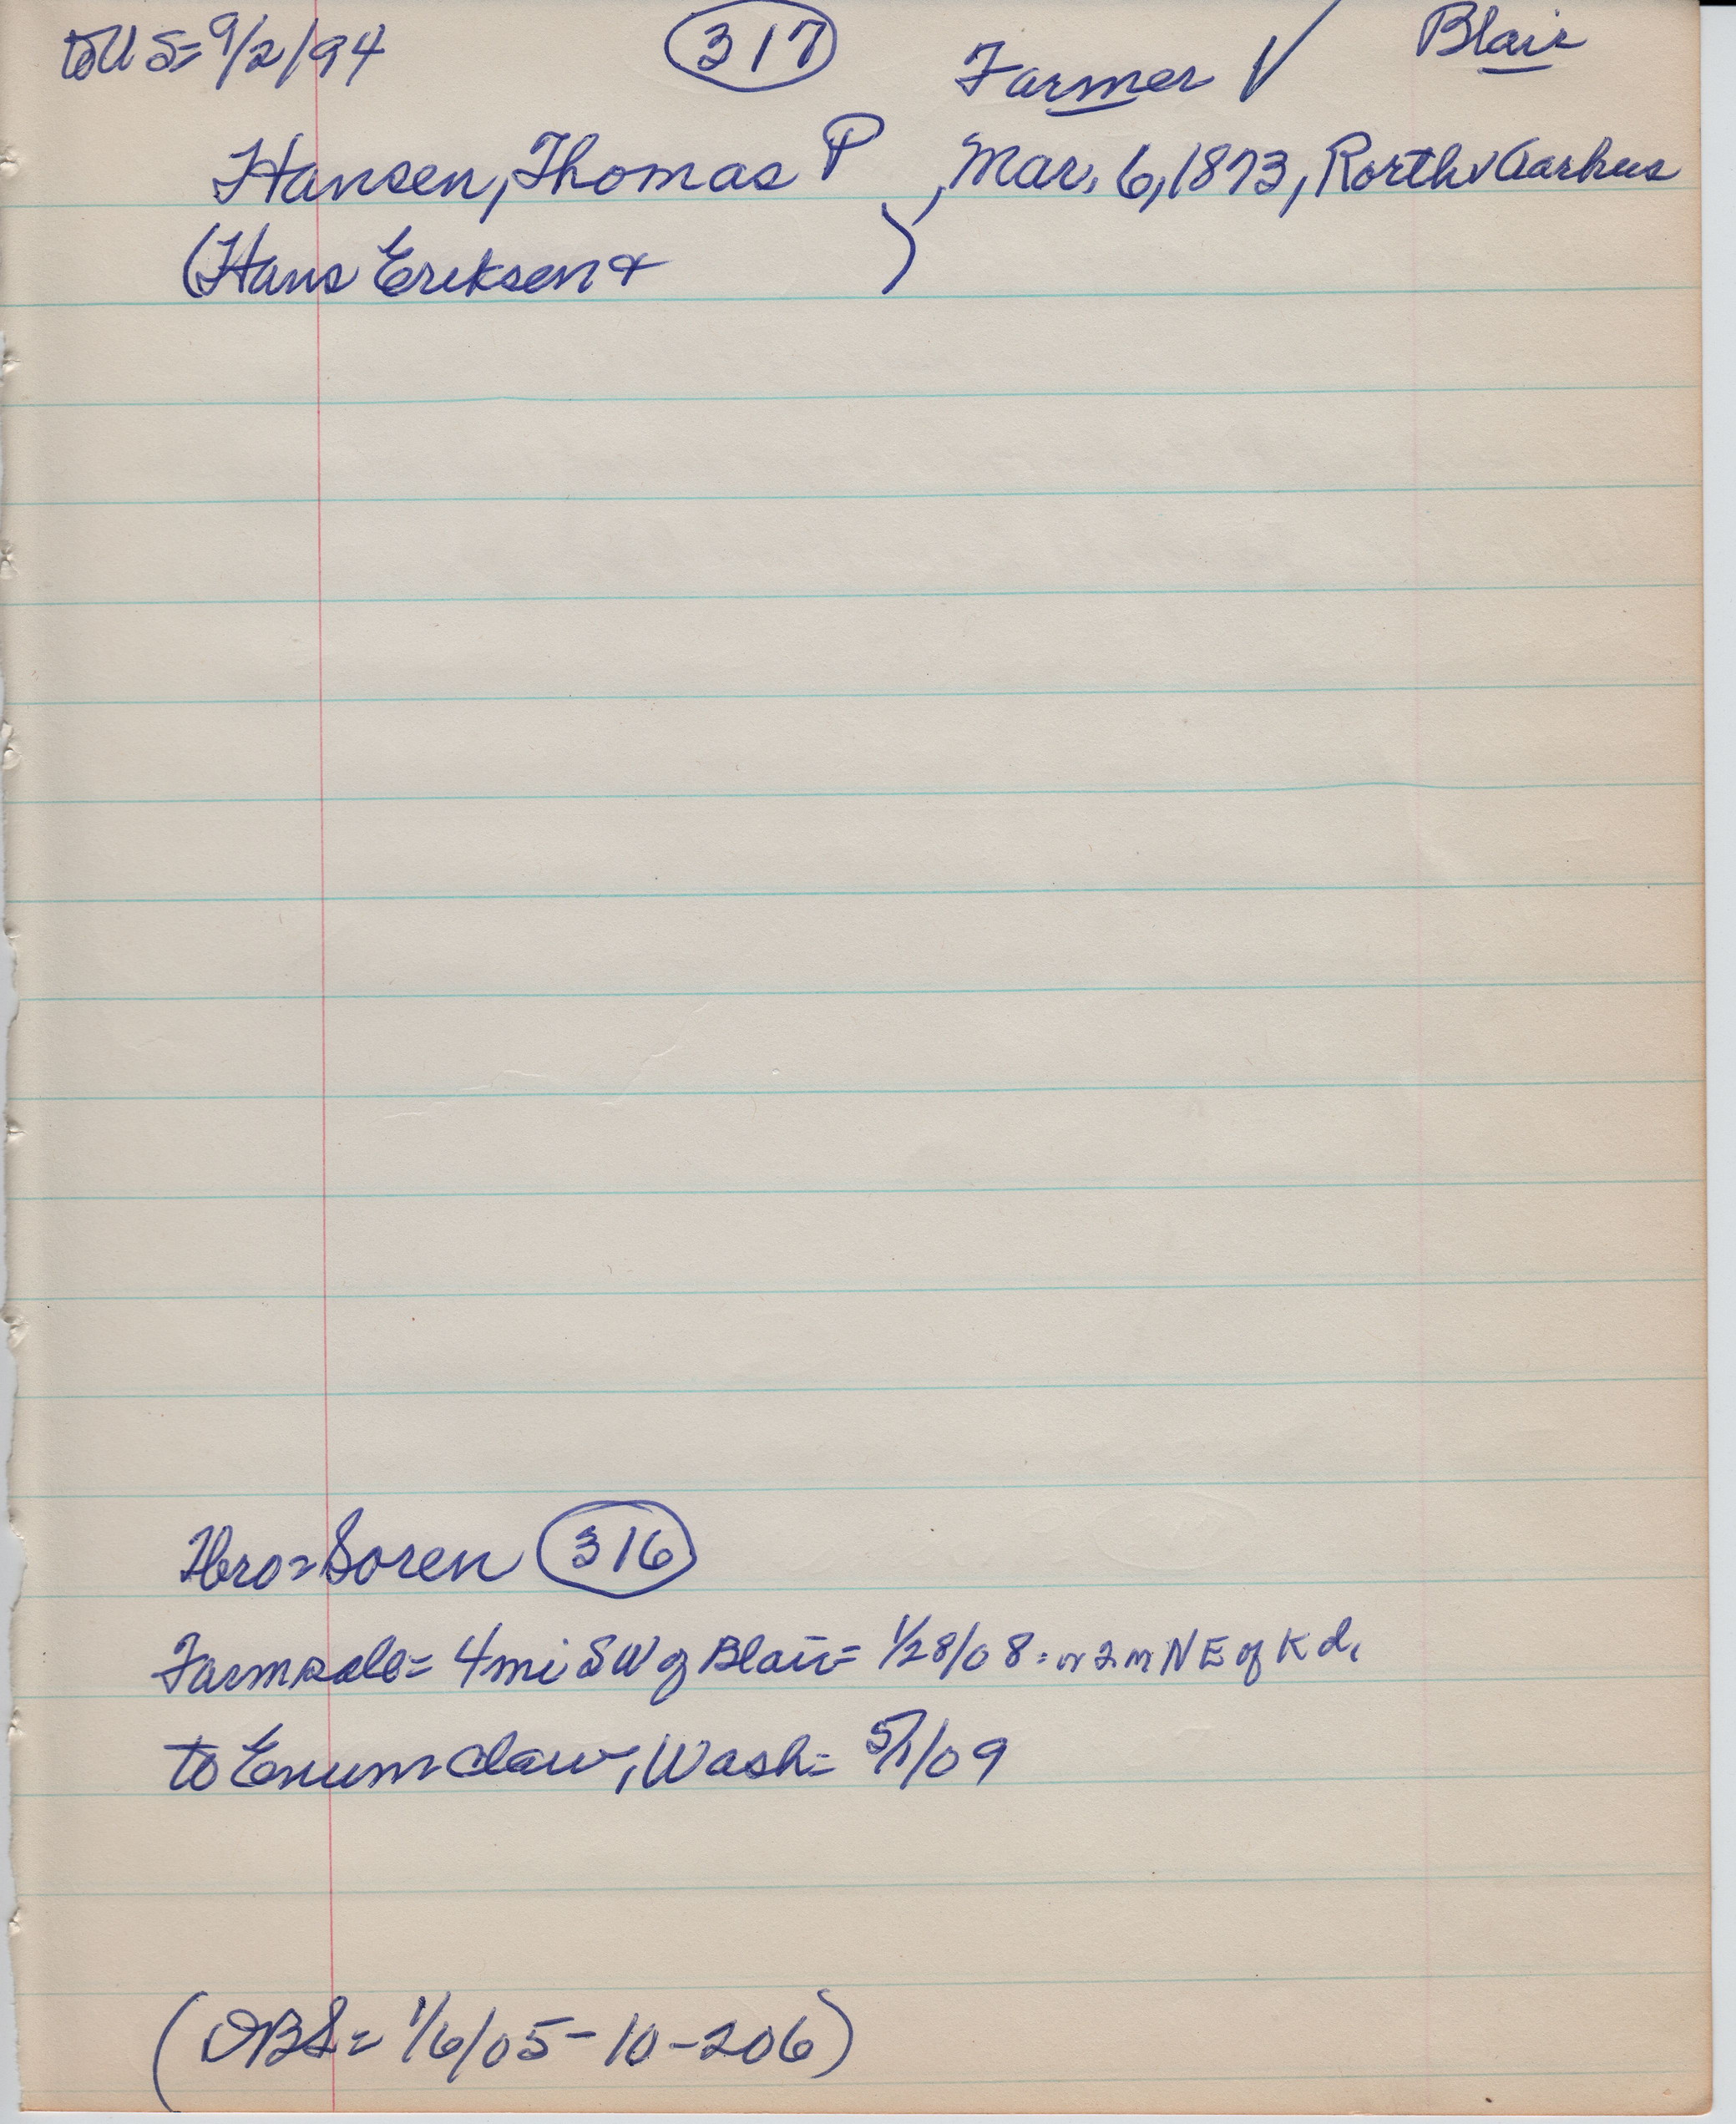 to US = 9/2/94 317 Farmer ✓ Blair
Hansen, Thomas P, Mar. 6, 1873, Rorth v Aarhus
(Hans Eriksen + )
Hbro = Soren 316
Farm sale = 4 mi SW of Blair = 1/28/08 = or 2 m NE of Kd.
to Enumclaw, Wash = 5/1/09
(OBS = 1/6/05 - 10 - 206)